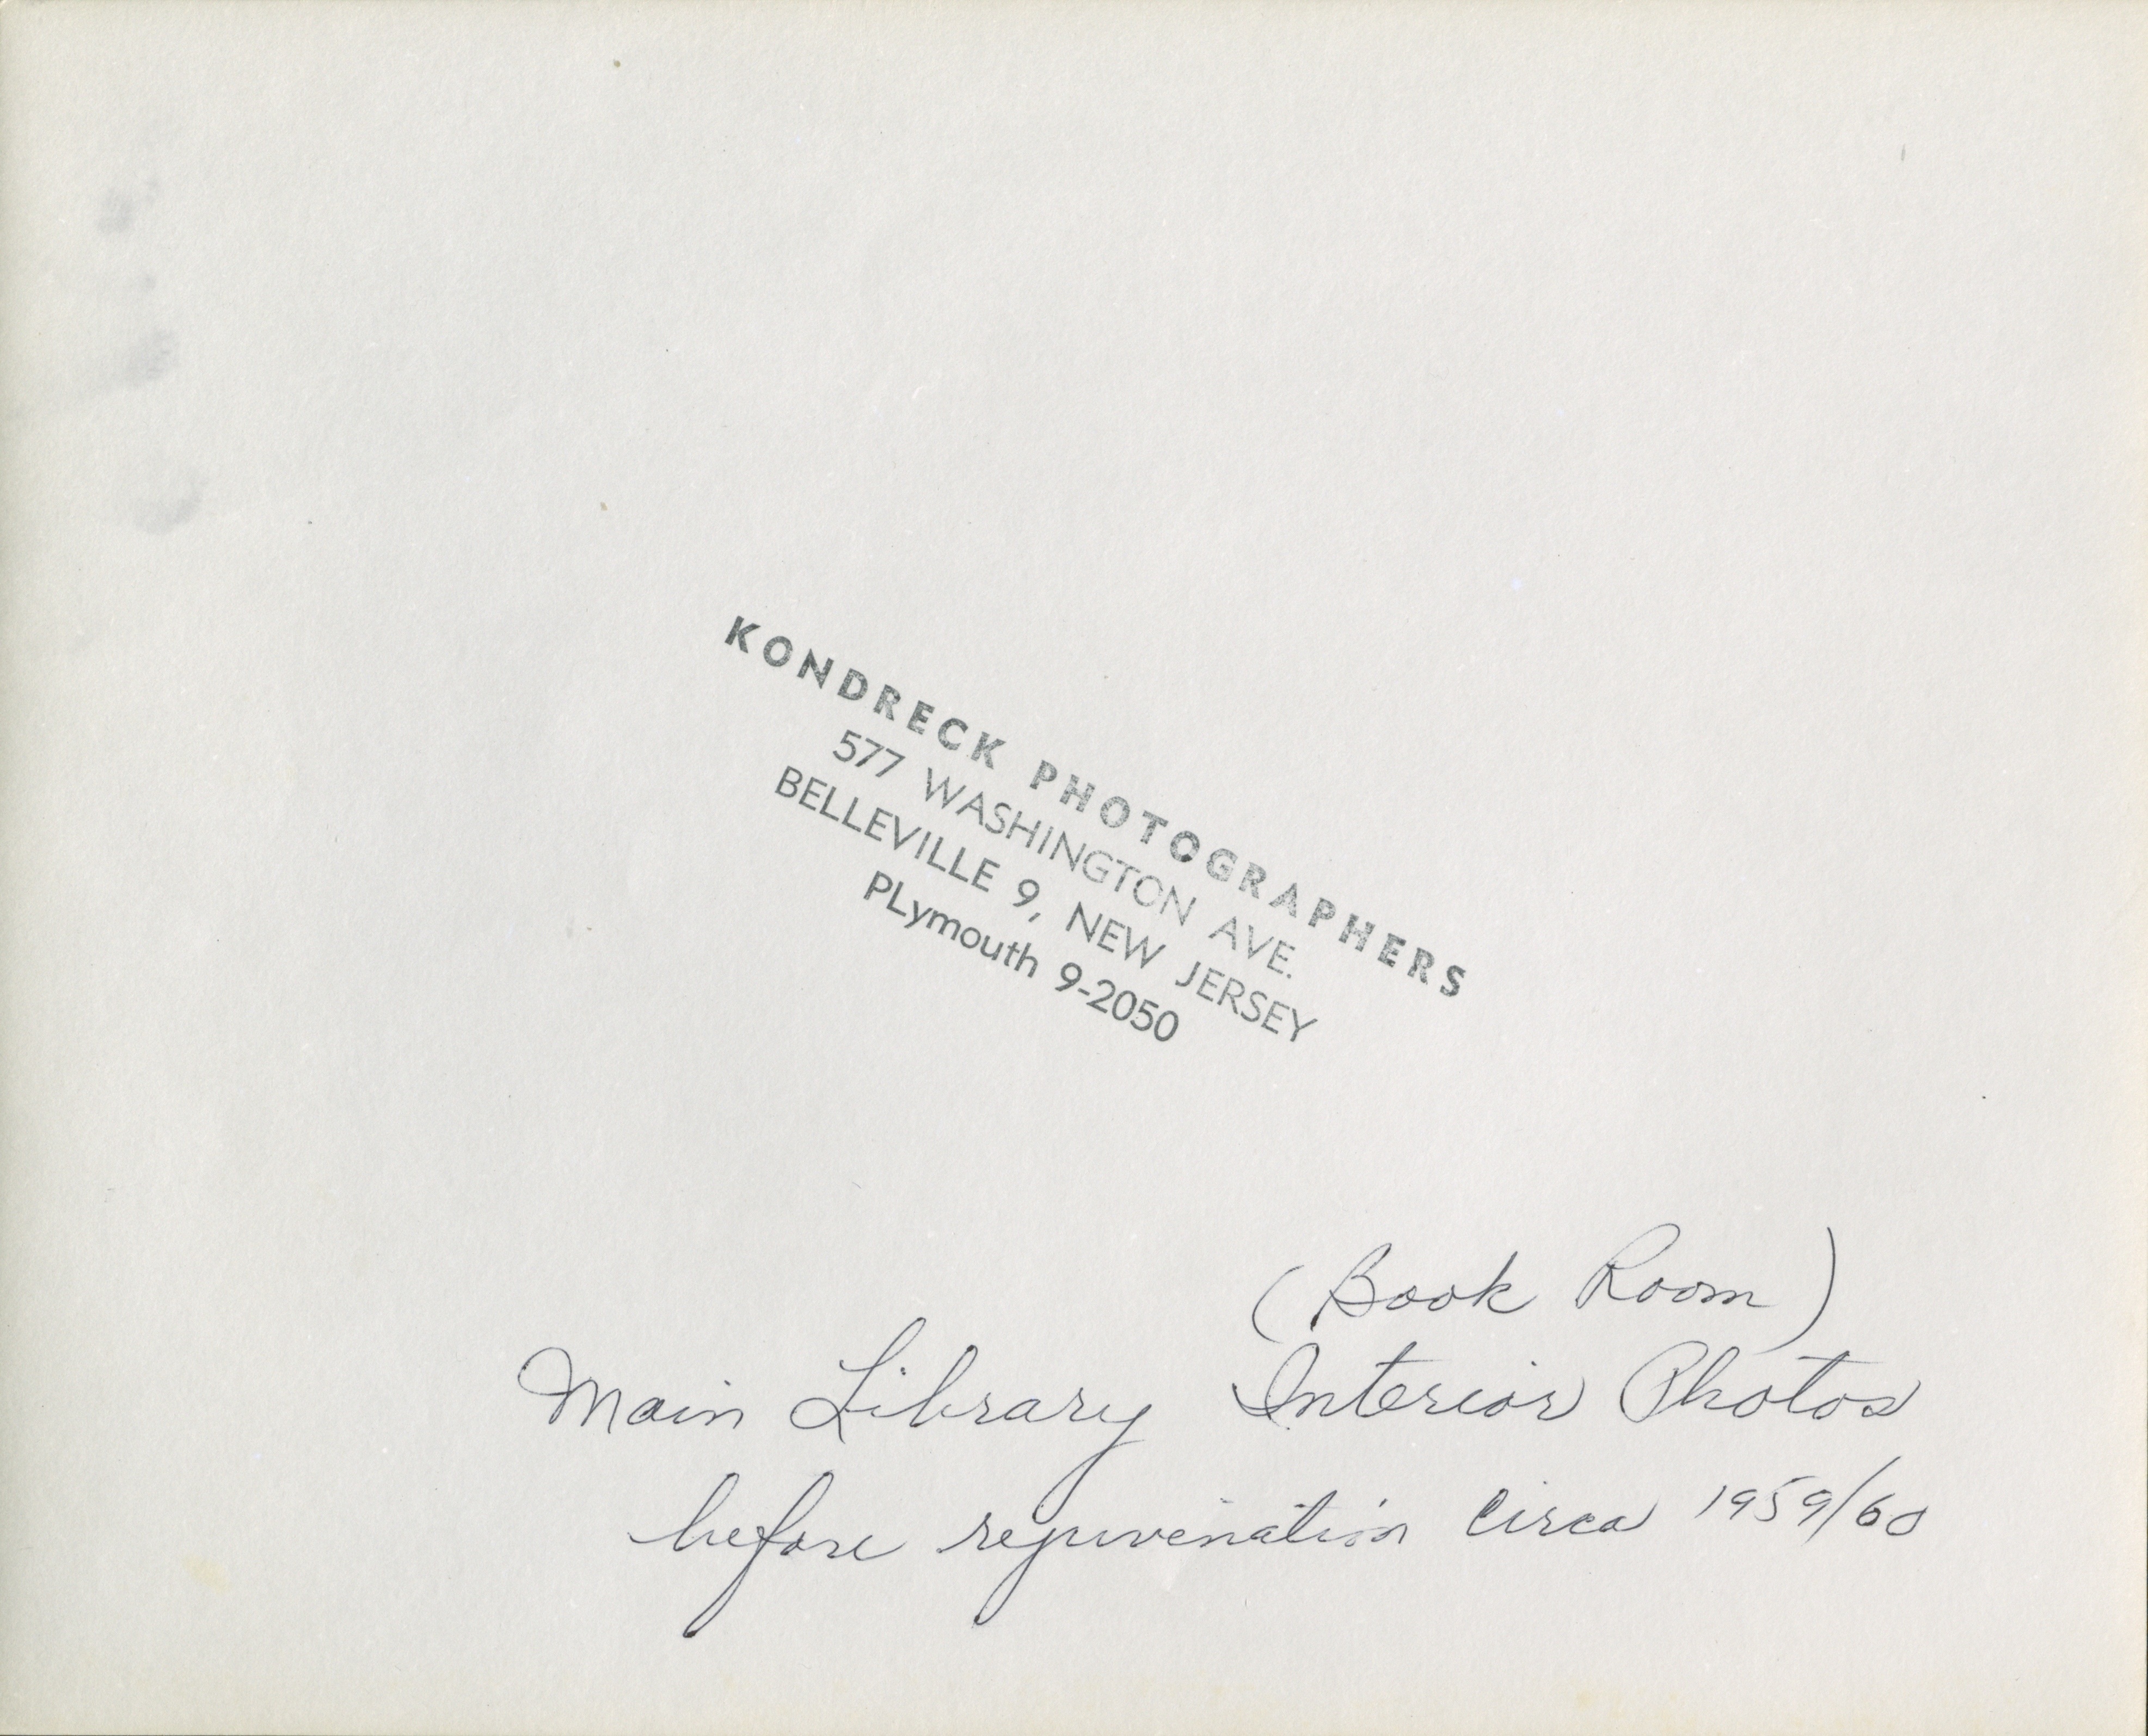 KONDRECK PHOTOGRAPHERS
577 WASHINGTON AVE.
BELLEVILLE 9, NEW JERSEY
PLymouth 9-2050
(Book Room)
Main Library Interior Photos
before rejuvenation circa 1959/60